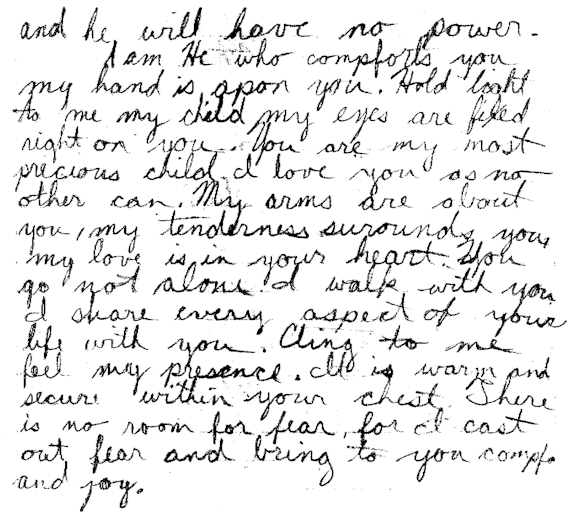 and he will have no power.
I am He who compforts you
my hand is apon you. Hold tight
to me my child my eyes are fixed
right on you. You are my most
precious child I love you as no
other can. My arms are about
you, my tenderness surounds you,
my love is in your heart. You
go not alone I walk with you
I share every aspect of your
life with you. Cling to me
feel my presence. It is warm and
secure within your chest. There
is no room for fear, for I cast
out fear and bring to you compf
and joy.